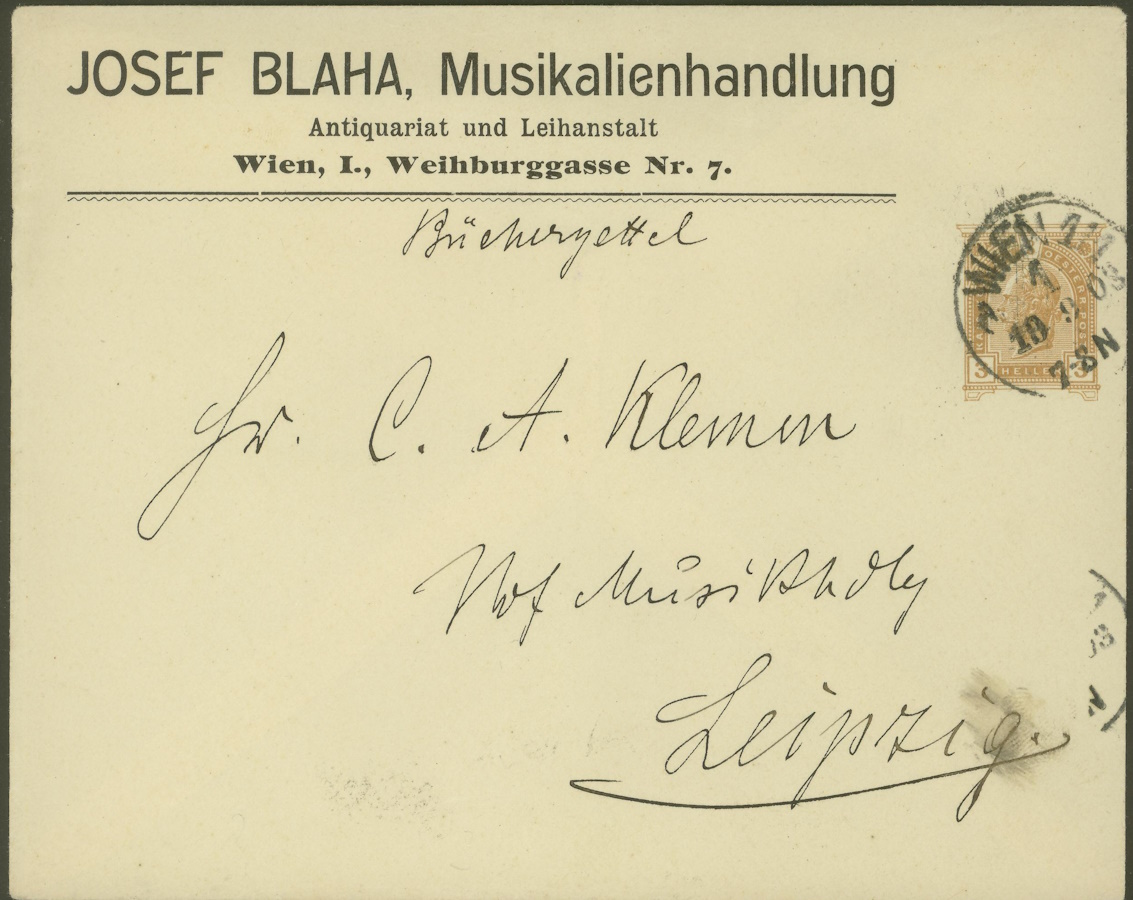 JOSEF BLAHA, Musikalienhandlung
Antiquariat und Leihanstalt
Wien, I., Weihburggasse Nr. 7.
Bücherzettel
WIEN 1/1
18 9 03
7-8N
OESTERR. POST
3 HELLER 3
Hr. C. A. Klemm
Hof Musikhdlg
03
Leipzig.